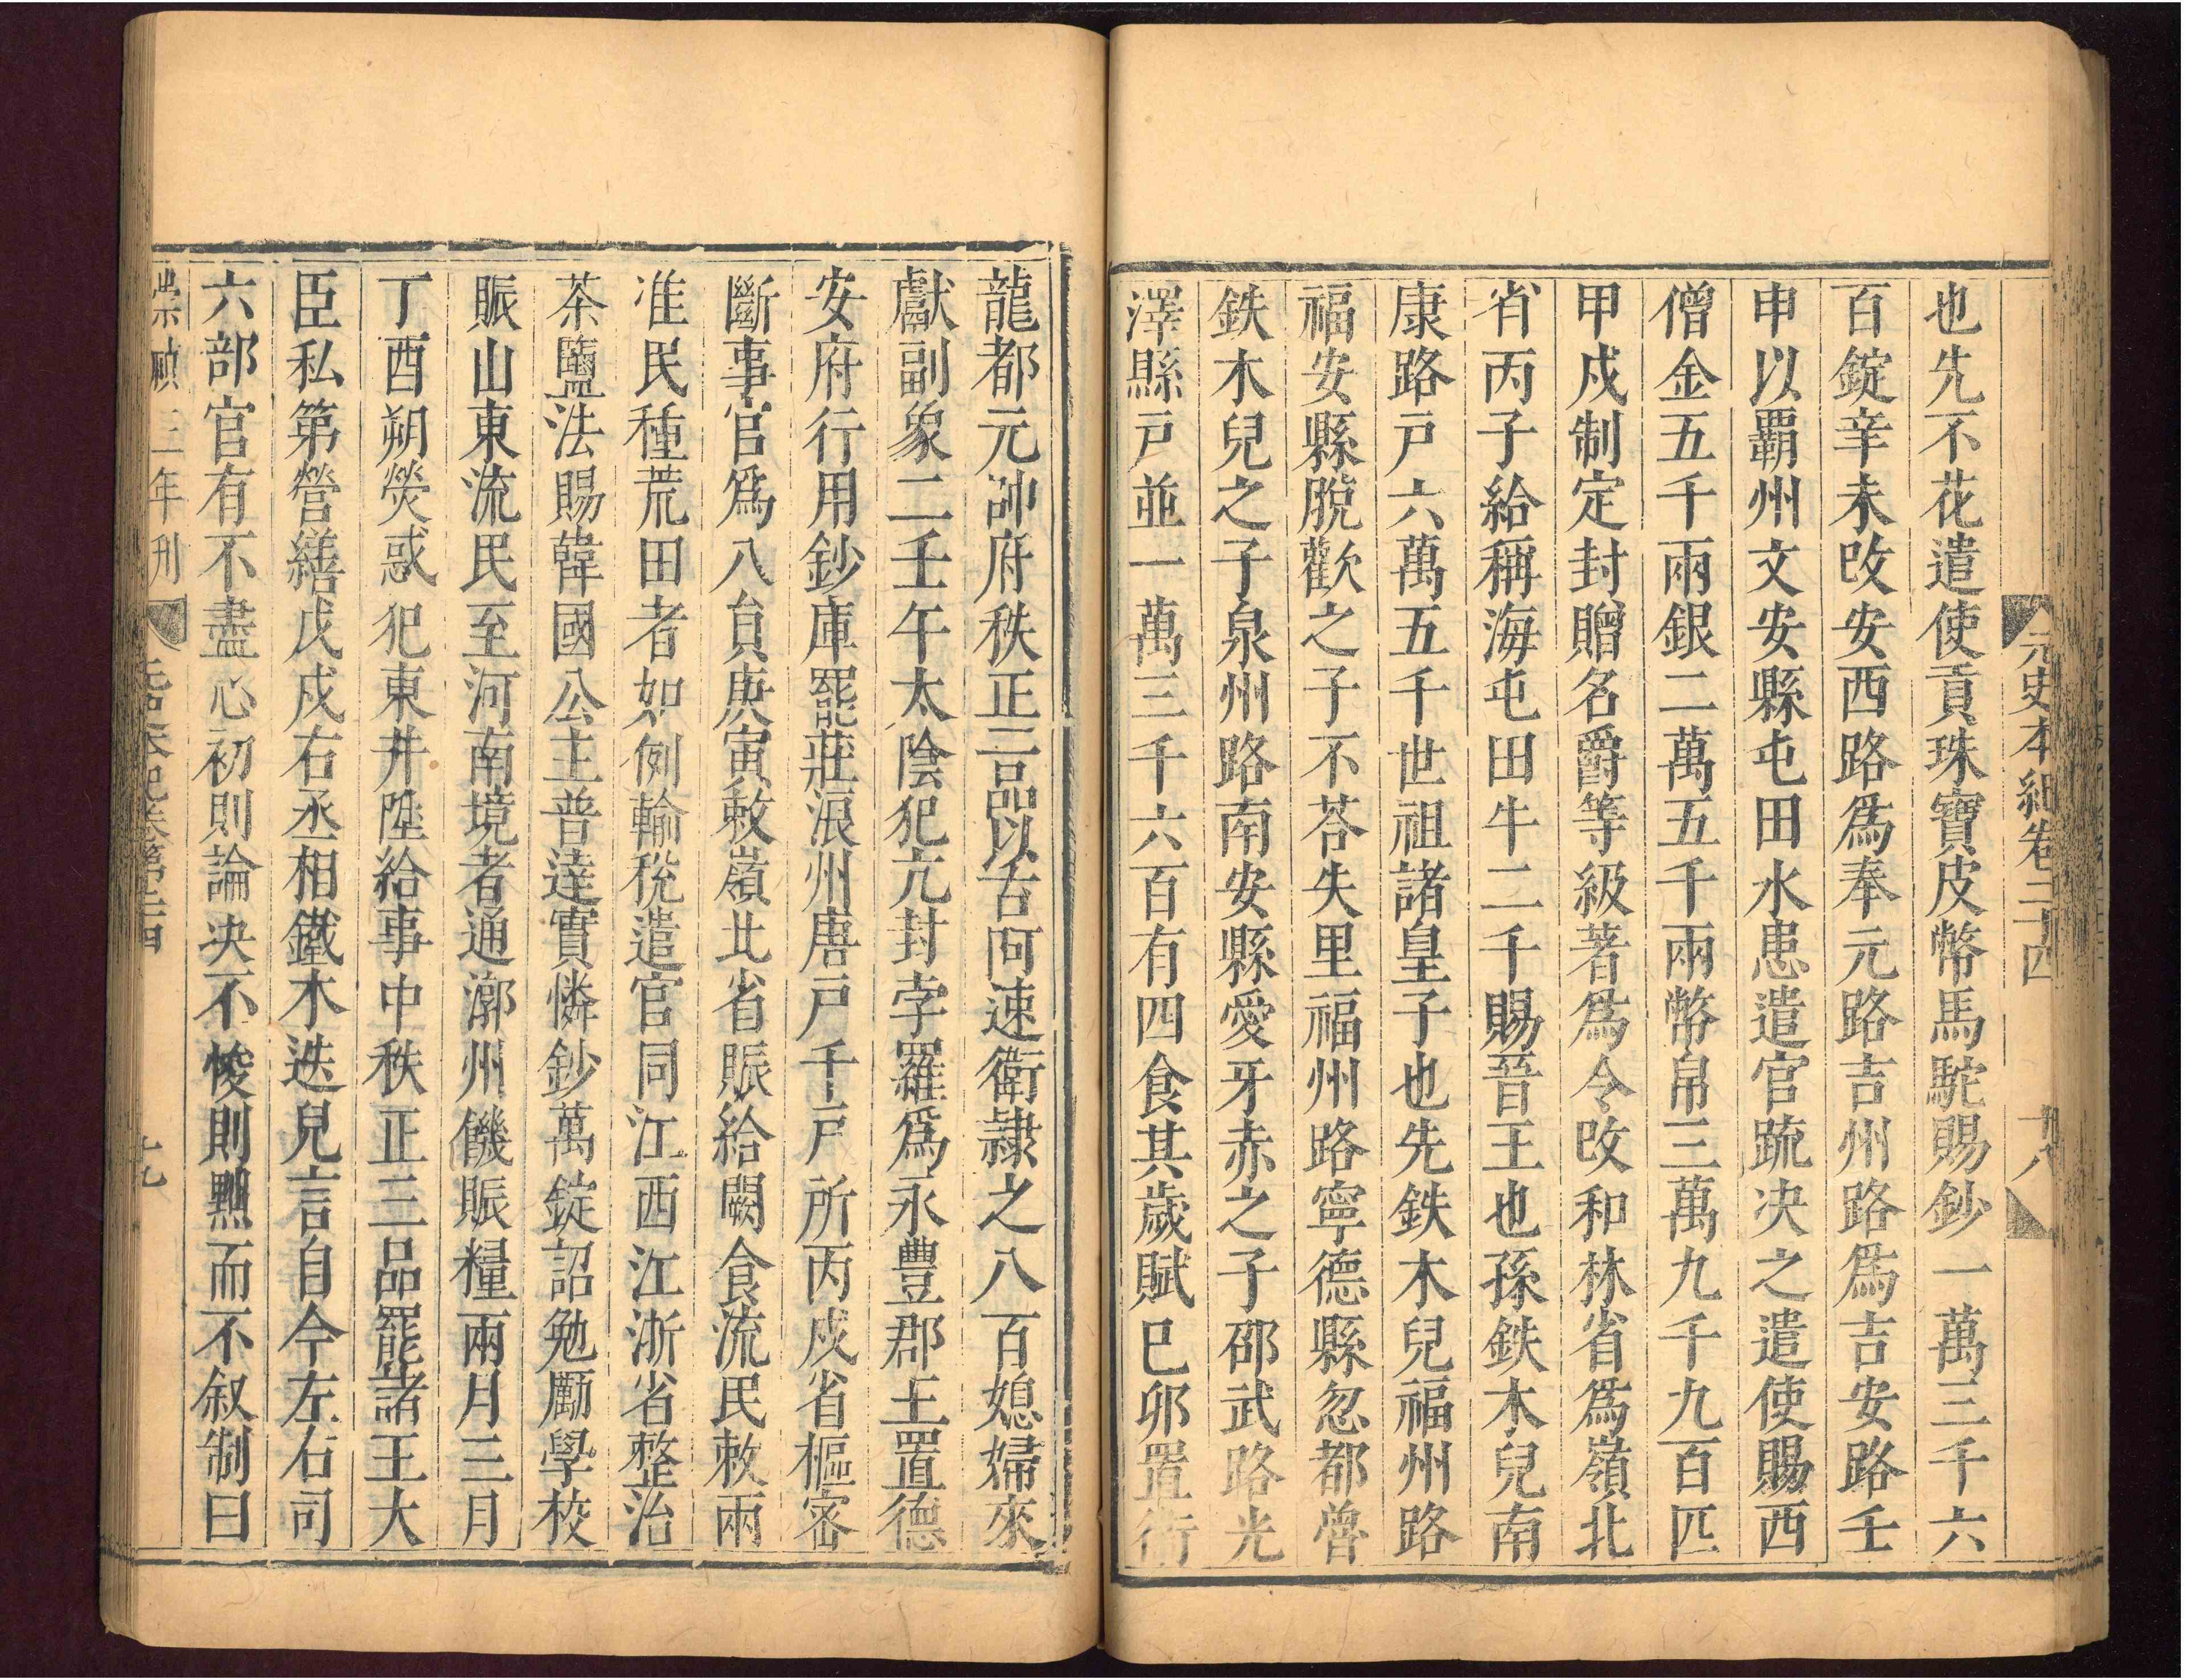 元史本紀卷二十四 十八
也先不花遣使貢珠寶皮幣馬駝賜鈔一萬三千六
百錠辛未改安西路爲奉元路吉州路爲吉安路壬
申以覇州文安縣屯田水患遣官䟽决之遣使賜西
僧金五千兩銀二萬五千兩幣帛三萬九千九百匹
甲戍制定封贈名爵等級著爲令改和林省爲嶺北
省丙子給稱海屯田牛二千賜晉王也孫鉄木兒南
康路戸六萬五千世祖諸皇子也先鉄木兒福州路
福安縣脫歡之子不荅失里福州路寧德縣忽都魯
鉄木兒之子泉州路南安縣愛牙赤之子邵武路光
澤縣戸並一萬三千六百有四食其歲賦巳卯置衍
龍都元帥府秩正二品以古阿速衛隷之八百媳婦來
獻副象二壬午太陰犯亢封孛羅爲永豐郡王置德
安府行用鈔庫罷莊浪州唐戸千戸所丙戍省樞密
斷事官爲八負庚寅敕嶺北省賑給闕食流民敕兩
淮民種荒田者如例輸稅遣官同江西江浙省整治
茶鹽法賜韓國公主普達實憐鈔萬錠詔勉勵學校
賑山東流民至河南境者通漷州饑賑糧兩月三月
丁酉朔熒惑犯東井陞給事中秩正三品罷諸王大
臣私第營繕戊戍右丞相鐵木迭兒言自今左右司
六部官有不盡心初則論决不悛則黜而不叙制曰
崇禎三年刊 元史本紀卷第二十四 十九